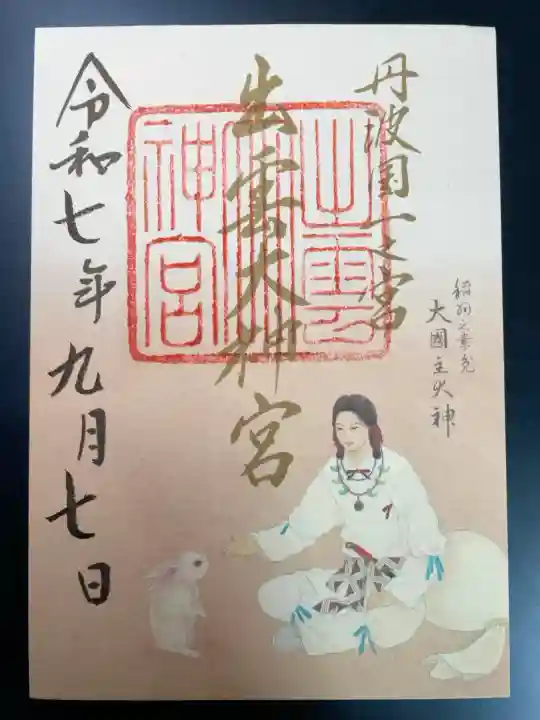 丹波国一之宮
稲羽之素兎
大國主大神
出雲大神宮
出雲大神宮
令和七年九月七日